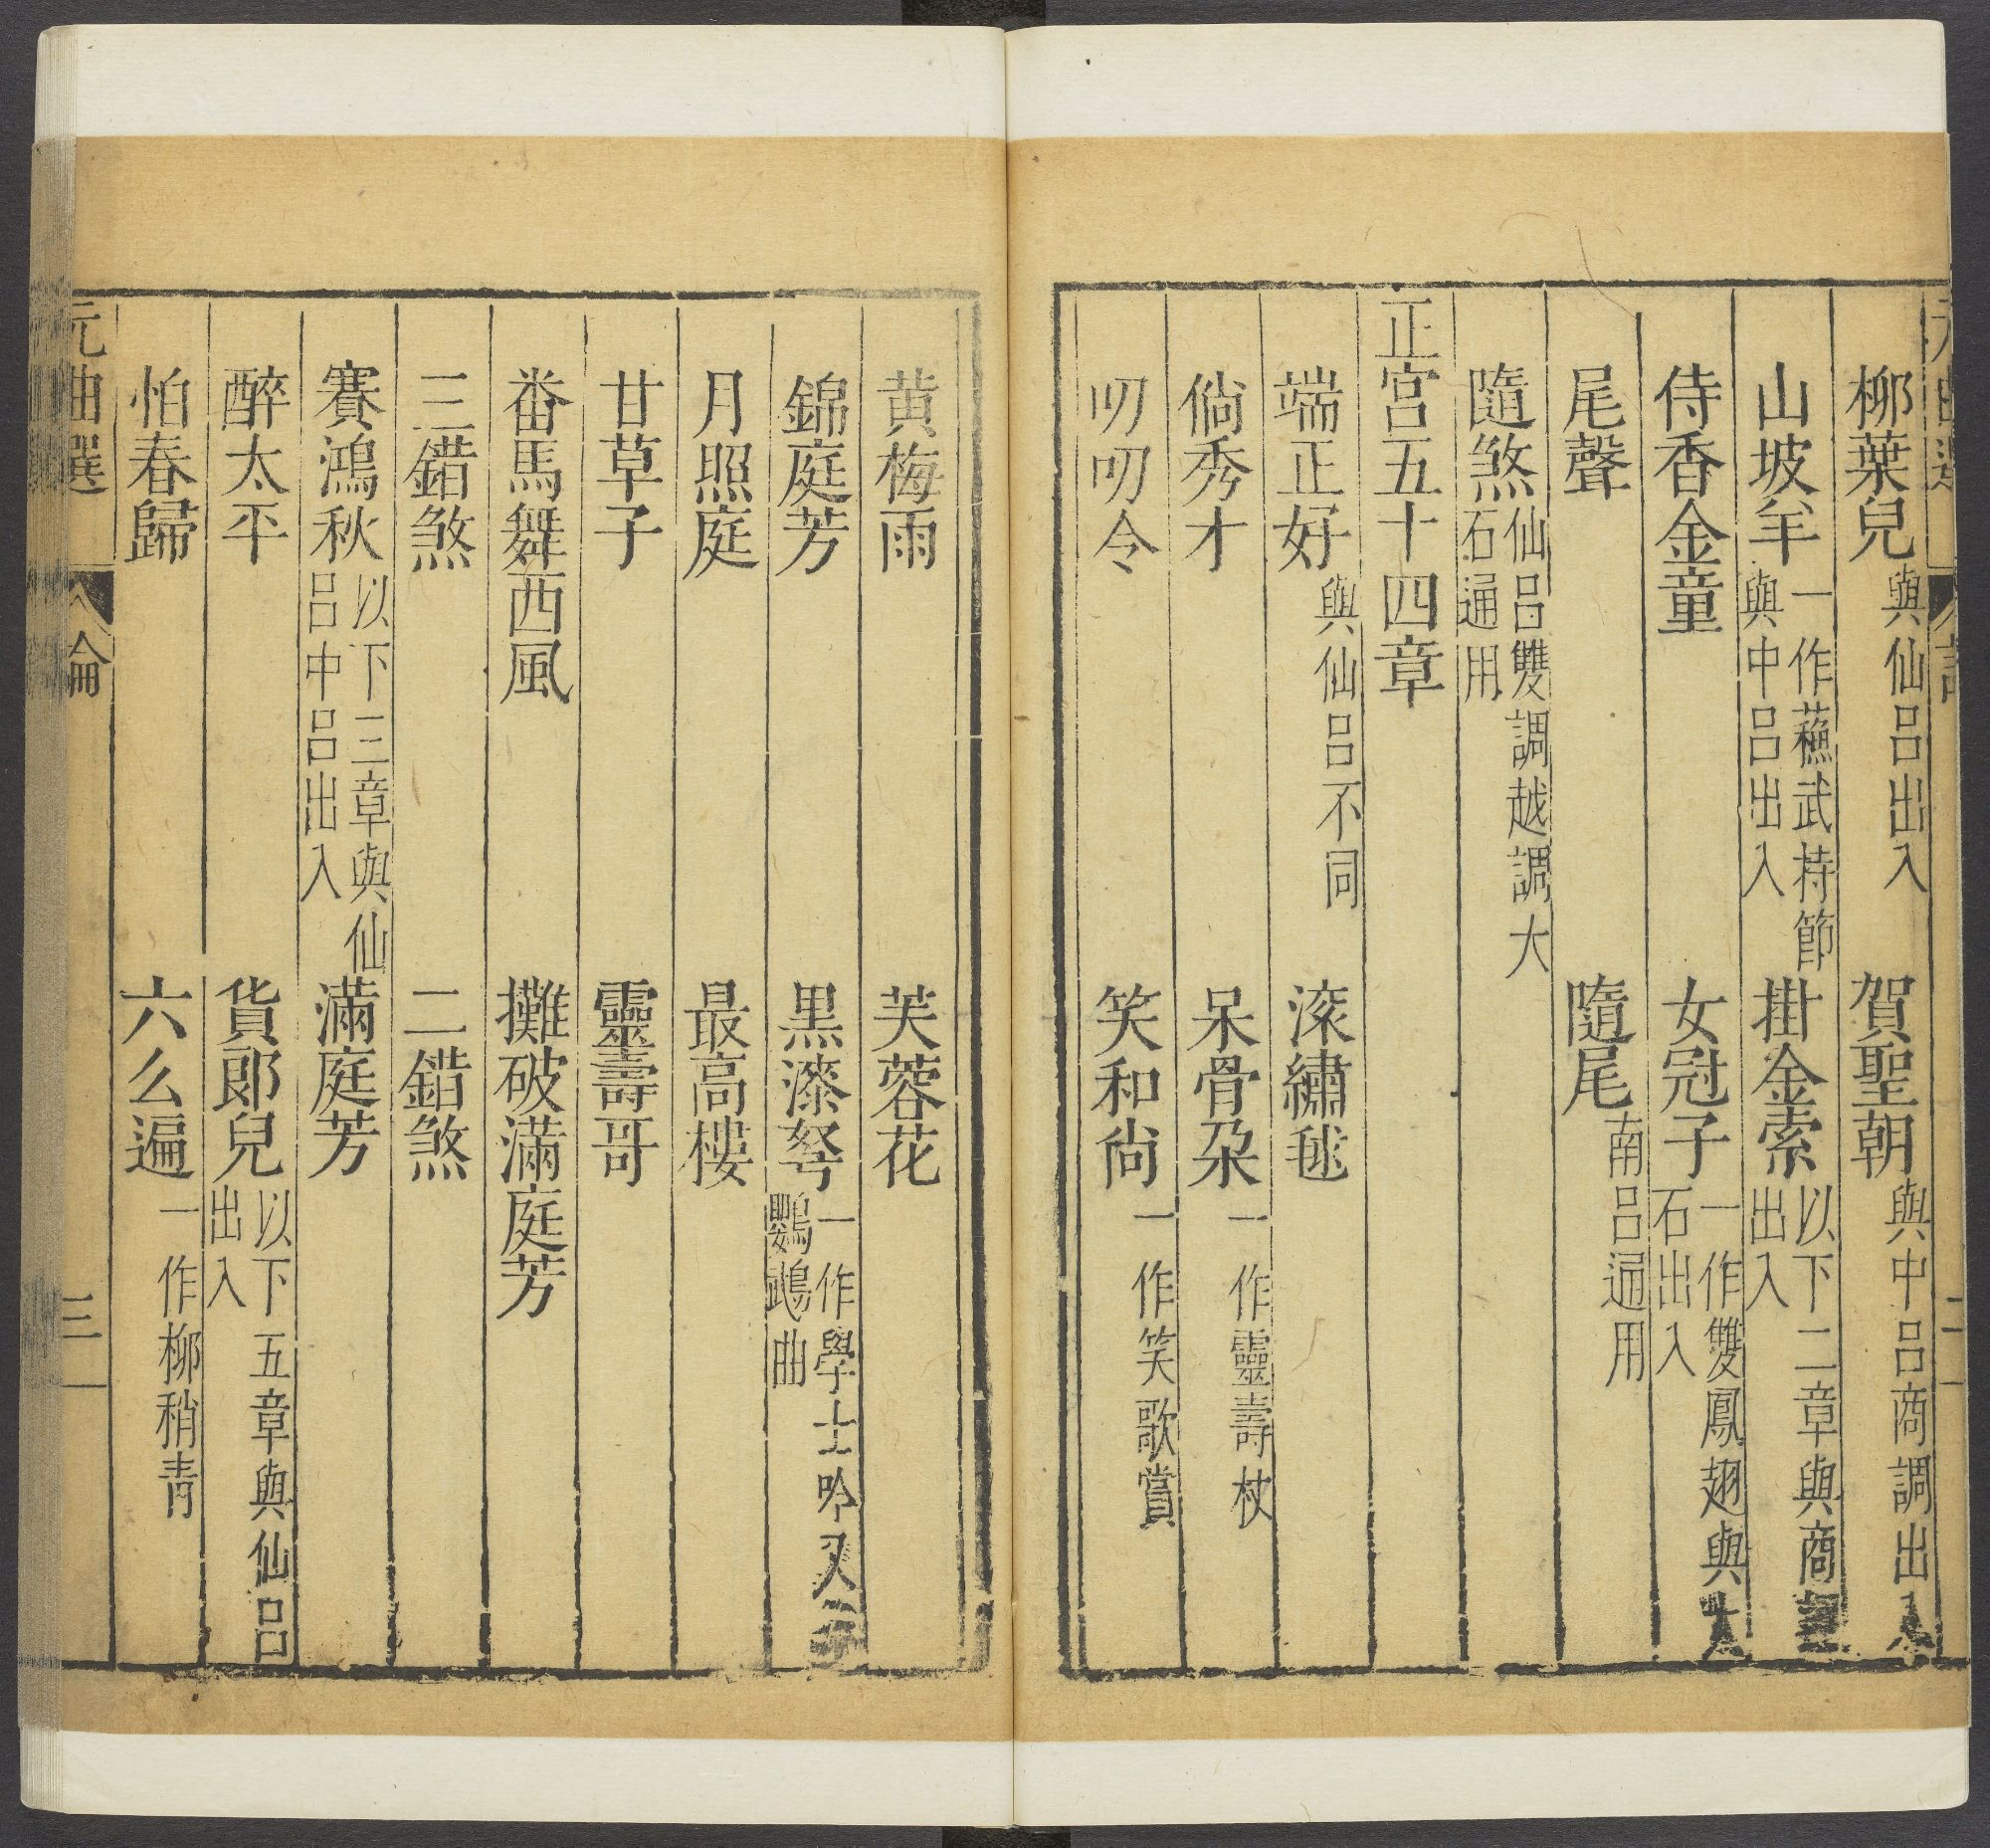 柳葉兒 與仙呂出入 賀聖朝 與中呂商調出入
山坡羊 一作蘓武持節與中呂出入 掛金索 以下二章與商調出入
侍香金童 女冠子 一作雙鳳翅與大石出入
尾聲 隨尾 南呂通用
隨煞 仙呂雙調越調大石通用
正宮五十四章
端正好 與仙呂不同 滚繡毬
倘秀才 呆骨朶 一作靈壽杖
叨叨令 笑和尚 一作笑歌賞
黄梅雨 芙蓉花
錦庭芳 黒漆弩 一作學士吟又鸚鵡曲
月照庭 最高樓
甘草子 靈壽哥
番馬舞西風 攤破滿庭芳
三錯煞 二錯煞
賽鴻秋 以下三章與仙呂中呂出入 滿庭芳
醉太平 貨郎兒 以下五章與仙呂出入
怕春歸 六么遍 一作柳稍青
元曲選 論 三